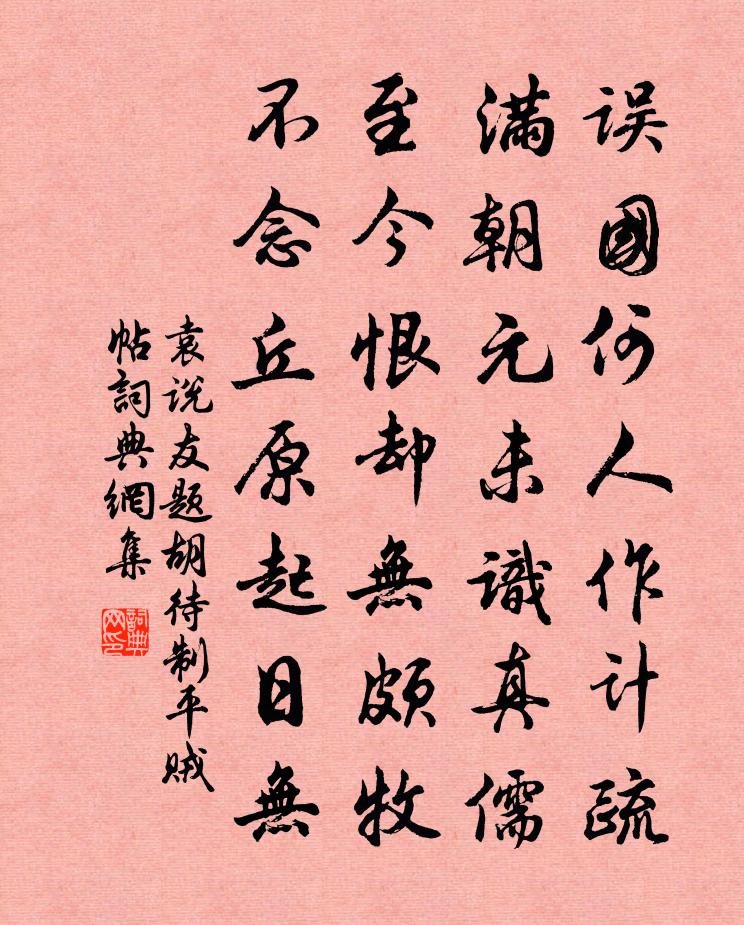 误國何人作计疏
满朝元未識真儒
至今恨却無頗牧
不念丘原起日無
袁说友题胡待制平贼
帖詞典網集
詞典
网印